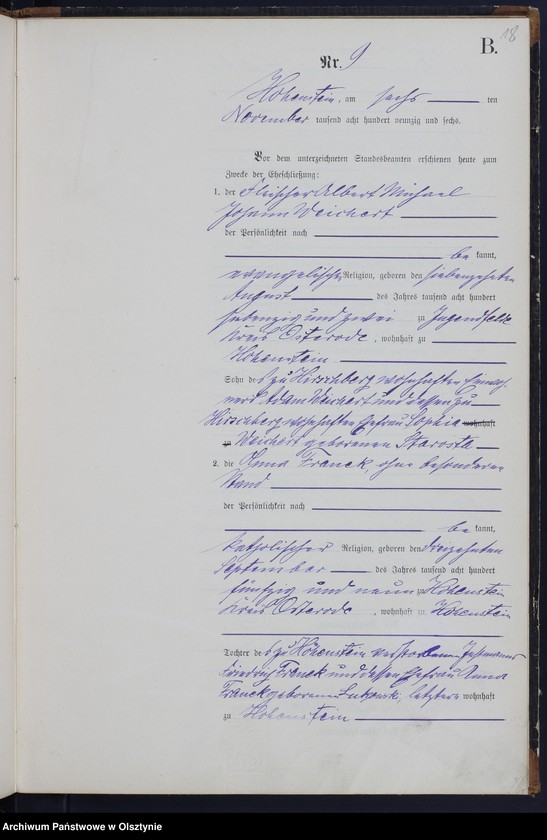 18
B.
Nr. 9
Hohenstein, am sechs ten
November tausend acht hundert neunzig und sechs.
Vor dem unterzeichneten Standesbeamten erschienen heute zum
Zwecke der Eheschließung:
1. der Fleischer Albert Michael
Johann Weichert
der Persönlichkeit nach
be kannt,
evangelischer Religion, geboren den siebenzehnten
August des Jahres tausend acht hundert
siebenzig und zwei zu Jugendfelde
Kreis Osterode, wohnhaft zu
Hohenstein
Sohn des zu Hirschberg wohnhaften
Adam Weichert und dessen zu
Hirschberg wohnhaften Ehefrau Sophie wohnhaft
zu Weichert geborenen Starosta
2. die Anna Franck, ohne besonderen
Stand
der Persönlichkeit nach
be kannt,
katholischer Religion, geboren den dreizehnten
September des Jahres tausend acht hundert
fünfzig und neun zu Hohenstein
Kreis Osterode, wohnhaft zu Hohenstein
Tochter des zu Hohenstein verstorbenen
Friedrich Franck und dessen Ehefrau Anna
Franck geborenen letztere wohnhaft
zu Hohenstein
Archiwum Państwowe w Olsztynie